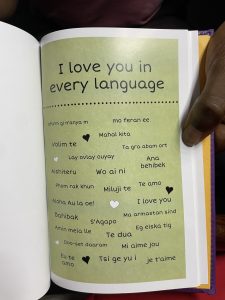 I love you in
every language
mo feran ee
Mahal kita
Volim te
Ta gra abam ort
Lay ovlay ouyay
Ana
behibek
Aishiteru
Wo ai ni
Phom rak khun
Miluji te
Te amo
Aloha Au la oe!
I love you
Dahibak
S'Agapo
Ma armastan sind
Amin mela lle
Te dua
Eg elska tig
Doo-set daaram
Mi aime jou
Eu te
amo
Tsi ge yu i
je t'aime